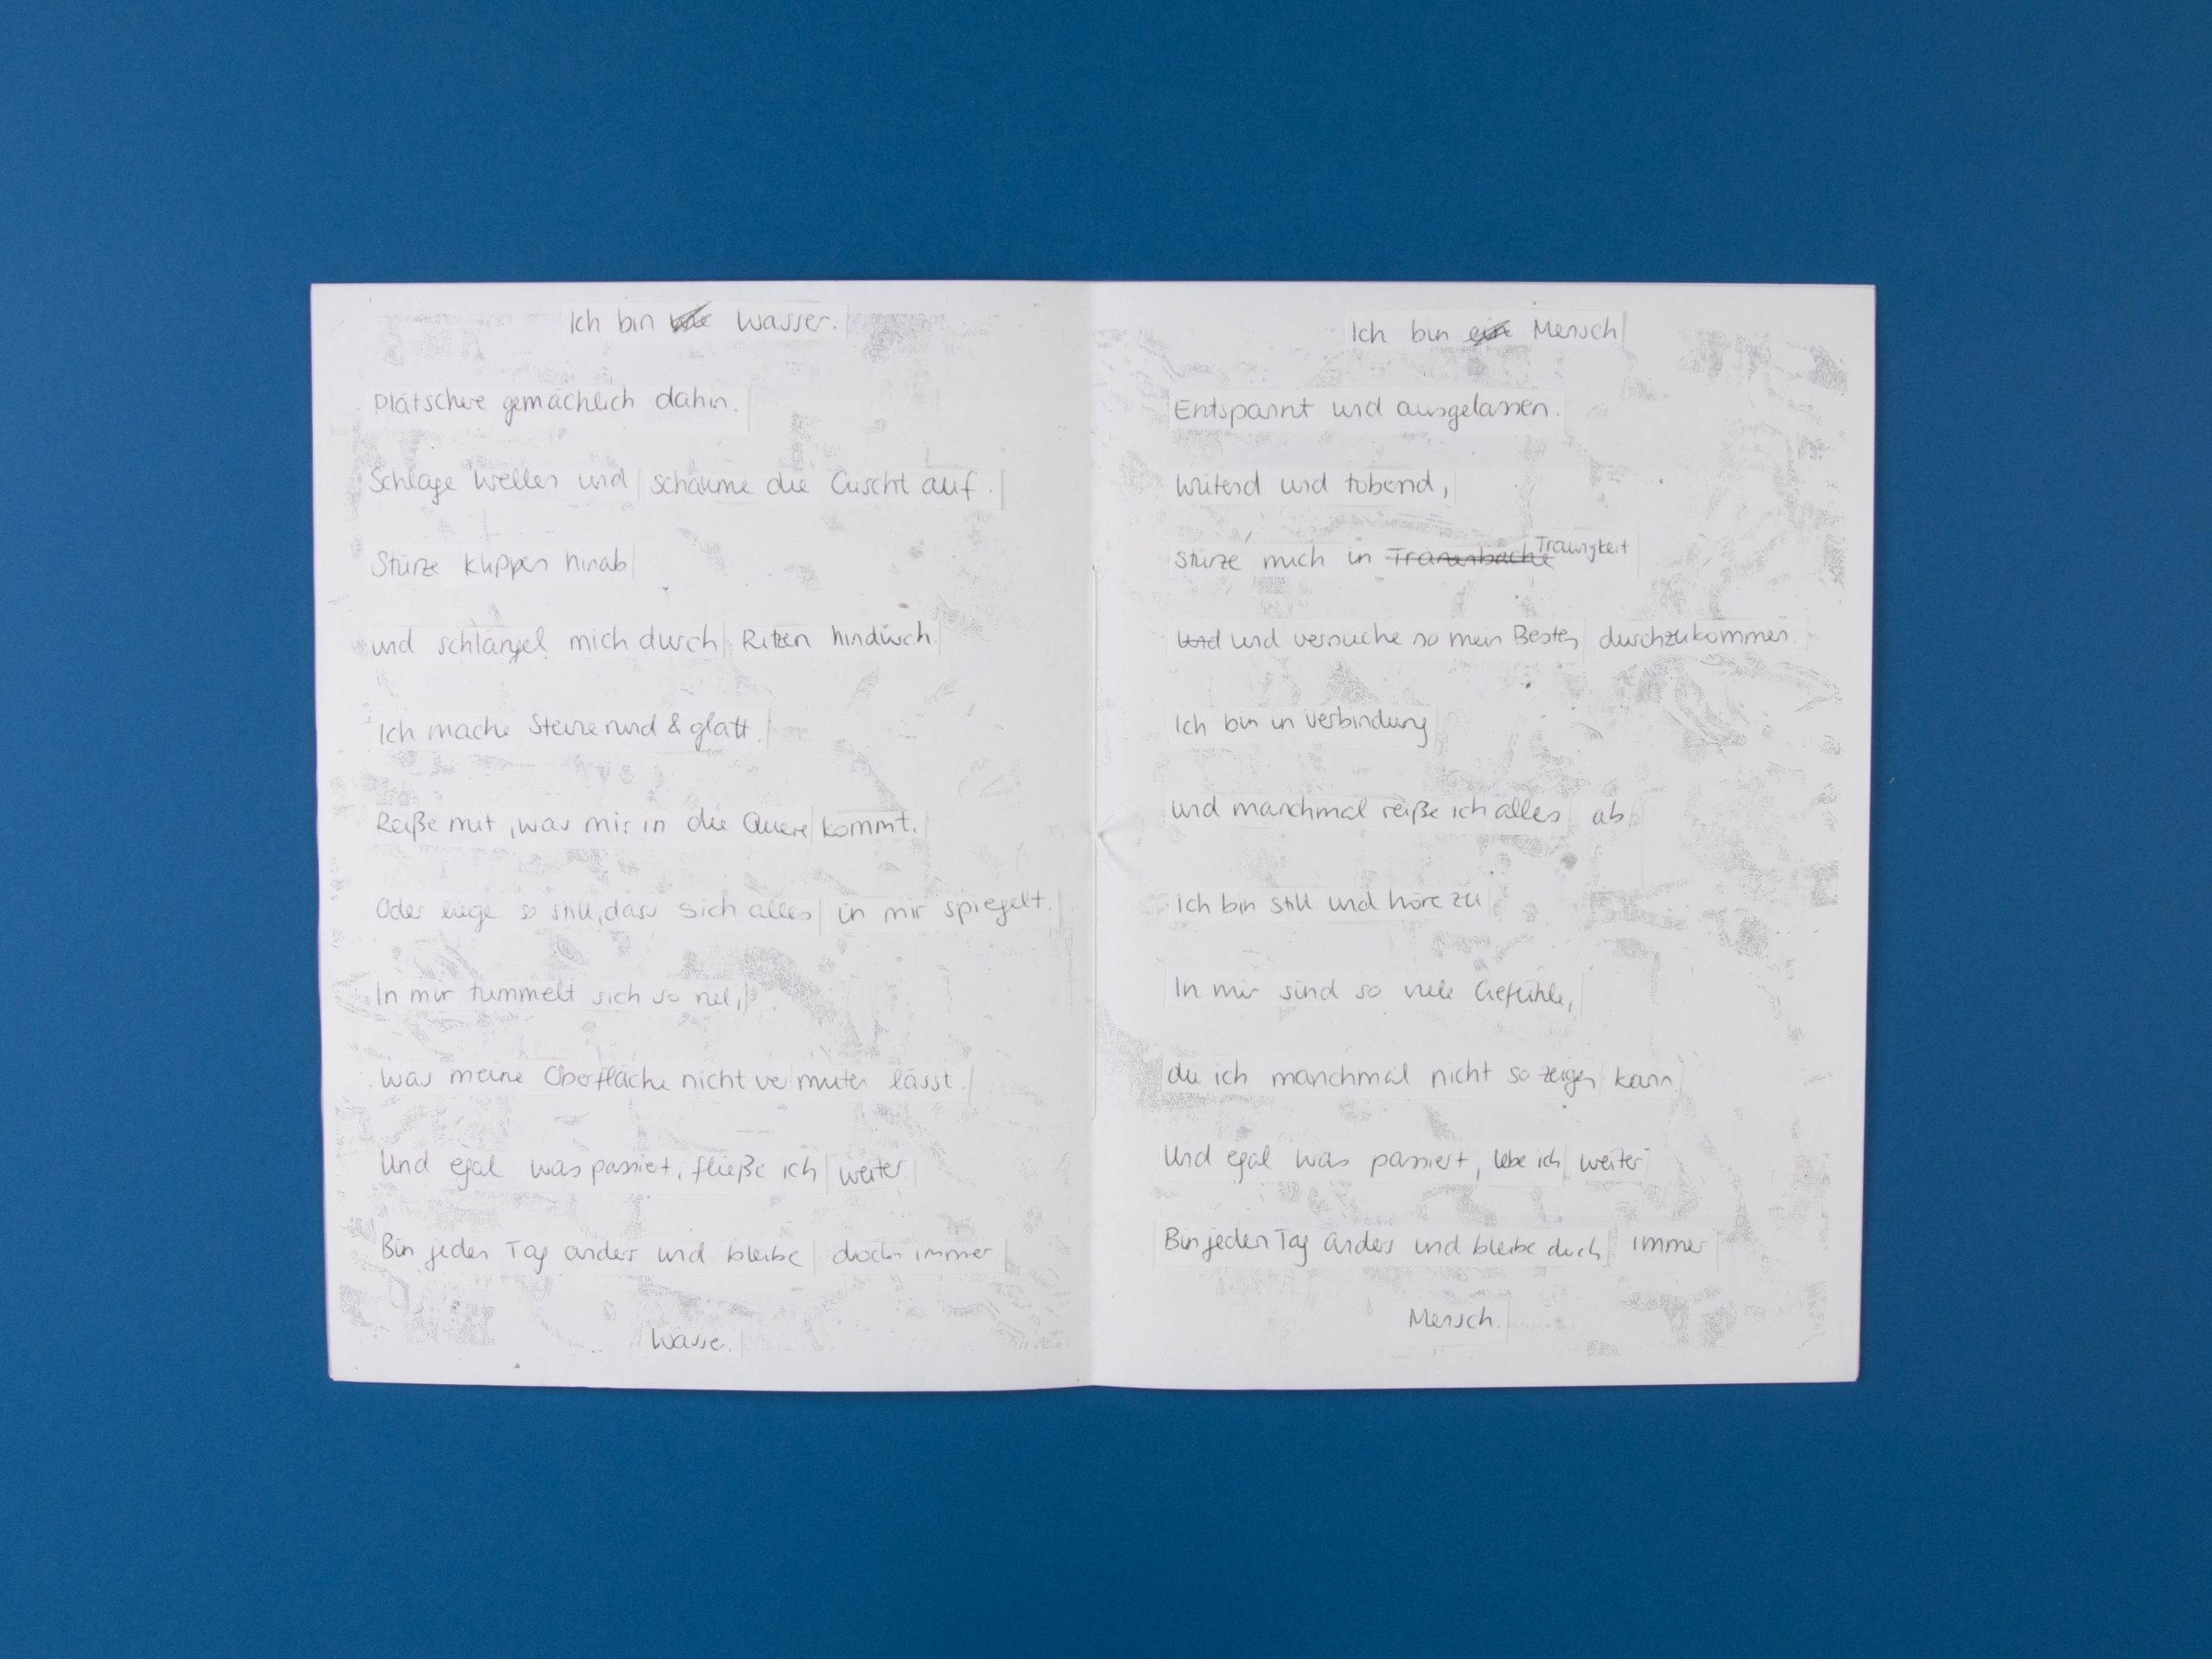 Ich bin wie Wasser.
Plätschere gemächlich dahin.
Schlage Wellen und schäume die Gischt auf.
Stürze Klippen hinab
und schlängel mich durch Ritzen hindurch.
Ich mache Steine rund & glatt.
Reiße mit, was mir in die Quere kommt.
Oder liege so still, dass sich alles in mir spiegelt.
In mir tummelt sich so viel,
was meine Oberfläche nicht vermuten lässt.
Und egal was passiert, fließe ich weiter.
Bin jeden Tag anders und bleibe doch immer
Wasser.
Ich bin ein Mensch
Entspannt und ausgelassen.
Wütend und tobend,
stürze mich in Tränenbäche Traurigkeit
Und und versuche so mein Bestes durchzukommen.
Ich bin in Verbindung
und manchmal reiße ich alles ab
Ich bin still und höre zu
In mir sind so viele Gefühle,
die ich manchmal nicht so zeigen kann
Und egal was passiert, lebe ich weiter
Bin jeden Tag anders und bleibe doch immer
Mensch.